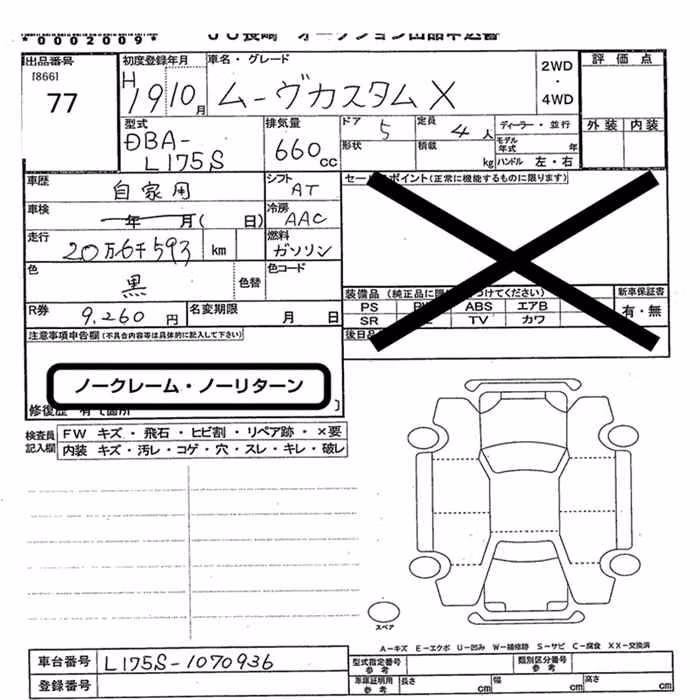 *0002009*
JU長崎 オークション出品申込書
出品番号
[866]
77
初度登録年月
H
19 10月
車名・グレード
ムーヴカスタムX
2WD
・
4WD
評価点
外装 内装
型式
DBA-
L175S
排気量
660cc
ドア 5
定員 4人
ディーラー・並行
形状
積載 kg
モデル年式 年
ハンドル 左・右
車歴
自家用
シフト
AT
車検
年 月( 日)
冷房
AAC
走行
20万6千593 km
燃料
ガソリン
色
黒
色替
色コード
R券
9.260円
名変期限
月 日
セールスポイント(正常に機能するものに限ります)
装備品 (純正品に限 つけてください)
PS ABS エアB
SR TV カワ
新車保証書
有・無
後日品
注意事項申告欄(不具合内容等は具体的に記入して下さい)
ノークレーム・ノーリターン
修復歴 有て箇所 ]
検査員記入欄
FW キズ・飛石・ヒビ割・リペア跡・×要
内装 キズ・汚レ・コゲ・穴・スレ・キレ・破レ
スペア
A-キズ E-エクボ U-凹み W-補修跡 S-サビ C-腐食 XX-交換済
車台番号 L175S-1070936
登録番号
型式指定番号 参考
類別区分番号 参考
車庫証明用 参考
長さ cm
幅 cm
高さ cm